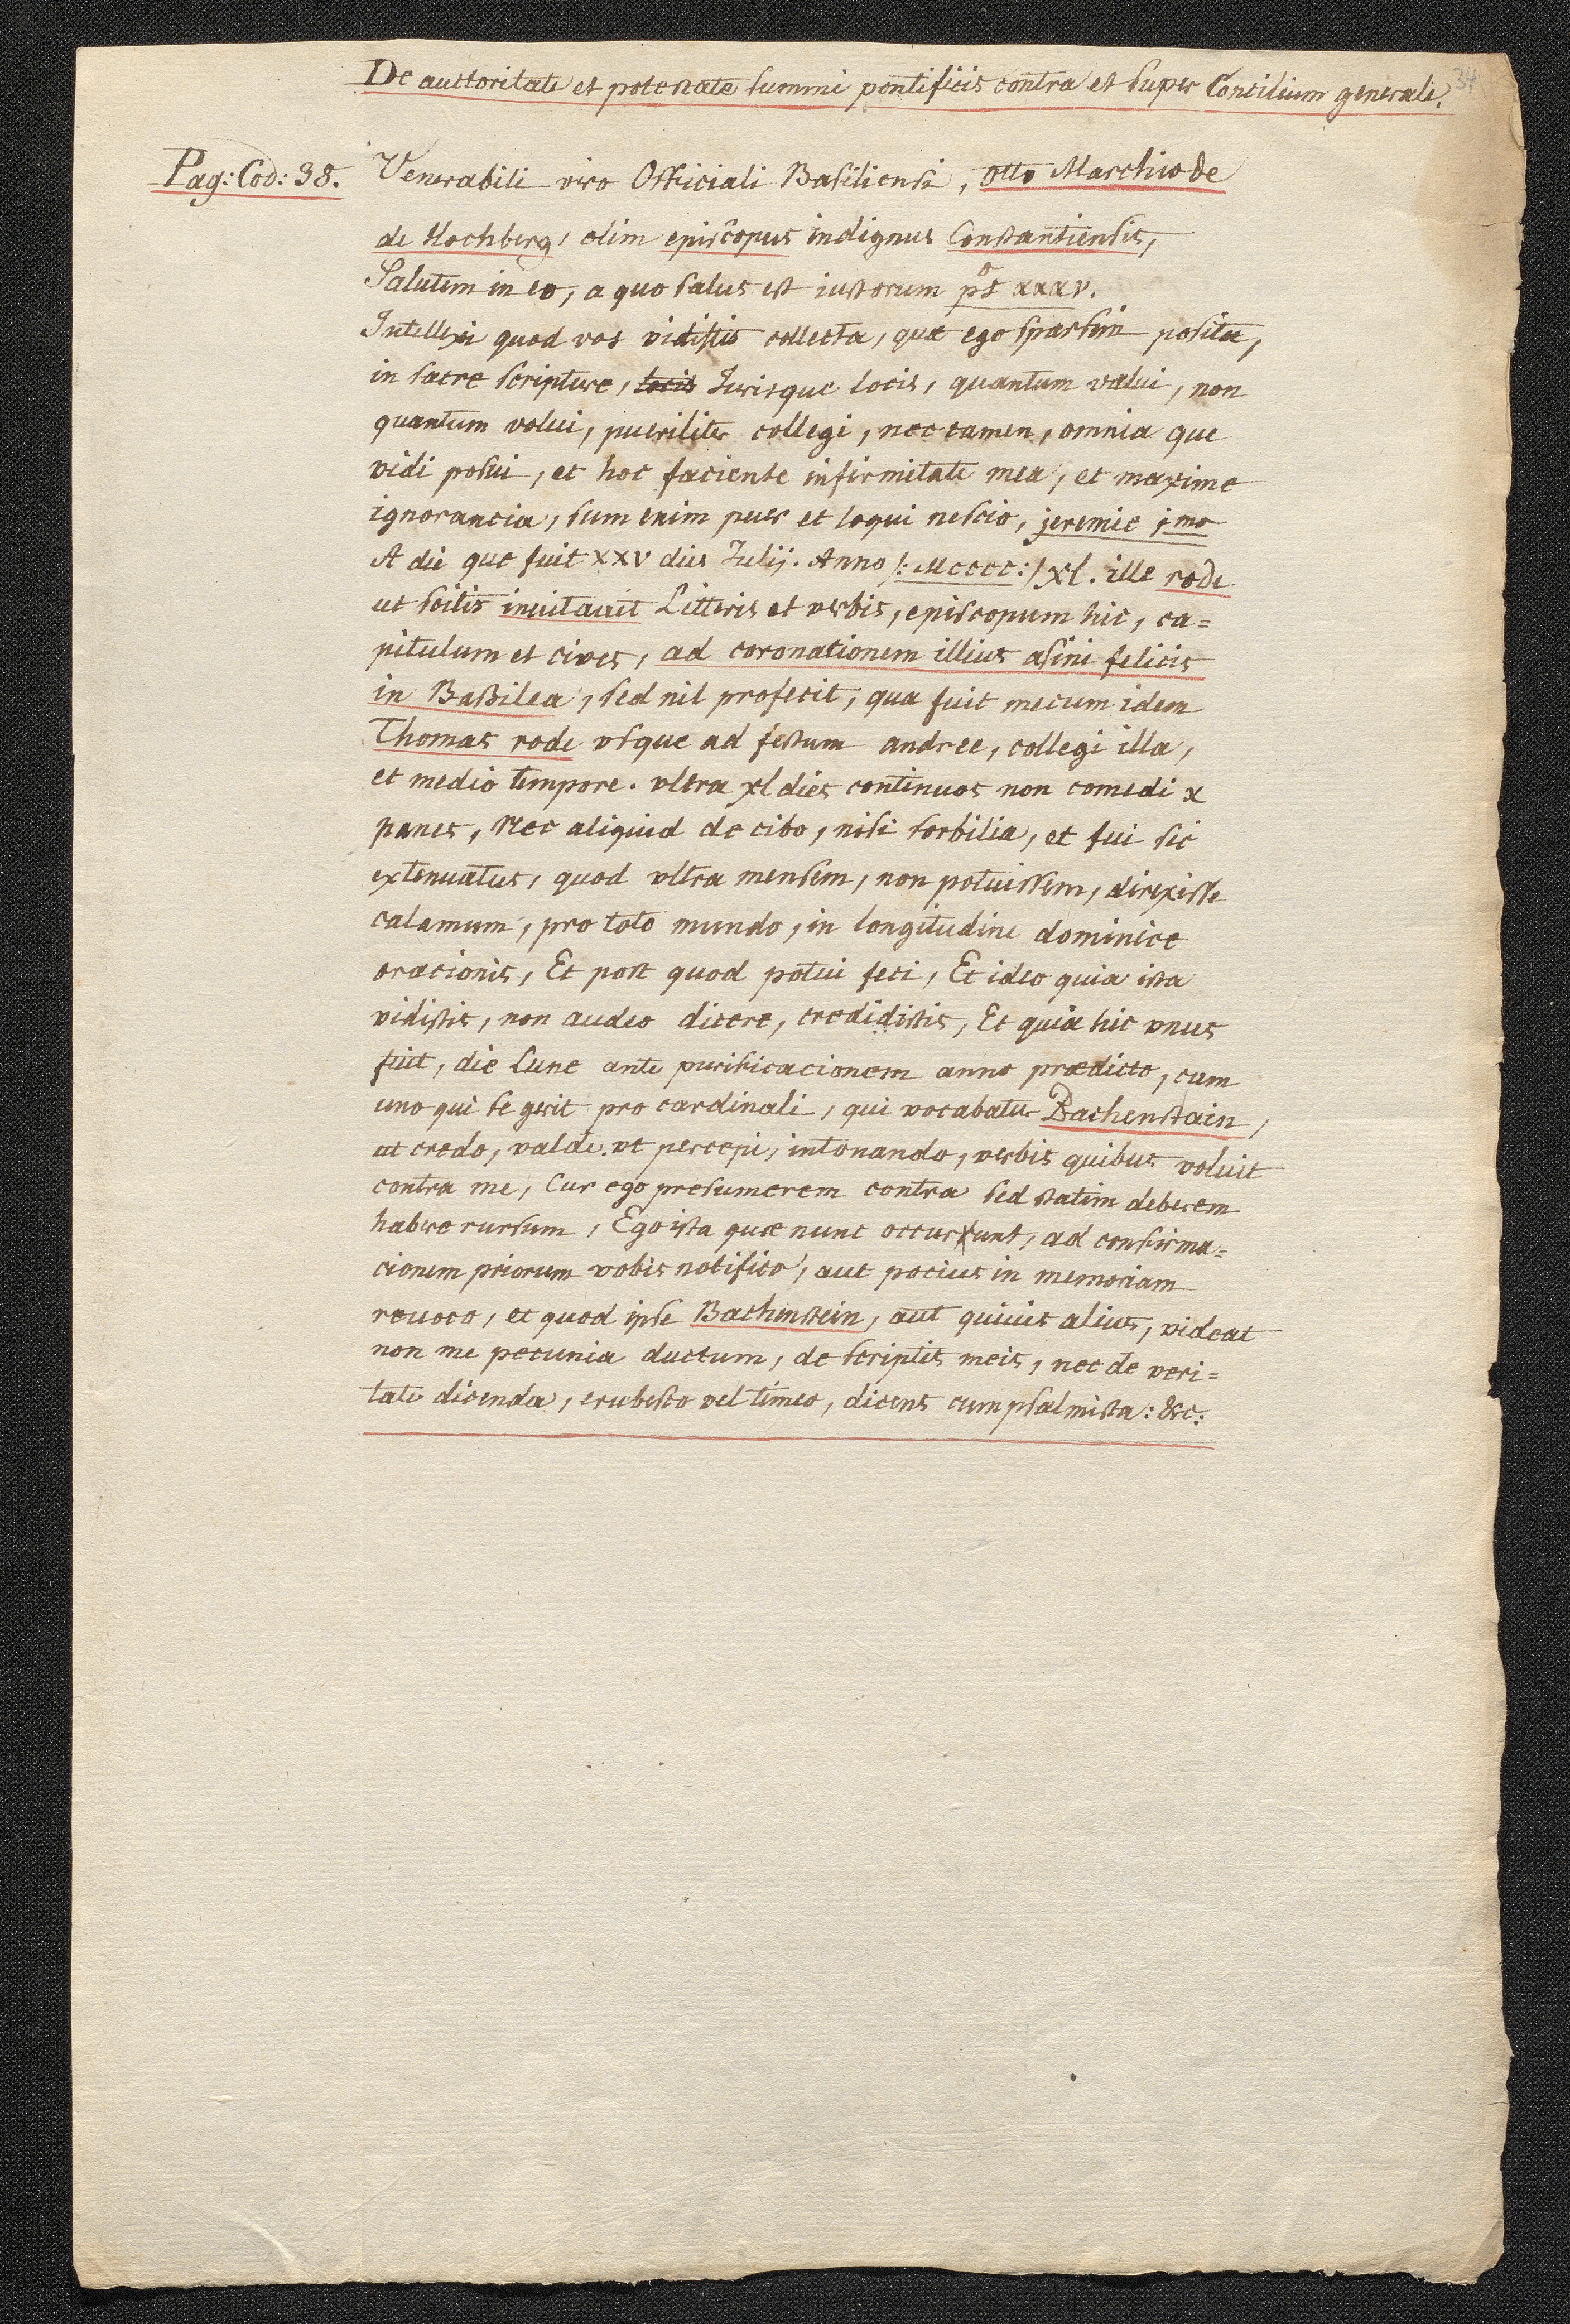 34
De auctoritate et potestate summi pontificis contra et super Concilium generale.
Pag: Cod: 38. Venerabili viro Officiali Basiliensi, Otto Marchio de
de Hochberg, olim episcopus indignus Constantiensis,
Salutem in eo, a quo salus est iustorum ps° xxxv.
Intellexi quod vos vidistis collecta, quæ ego sparsim posita,
in sacre scripture, locis Jurisque locis, quantum valui, non
quantum volui, pueriliter collegi, nec tamen, omnia que
vidi posui, et hoc faciente infirmitate mea, et maxime
ignorancia, sum enim puer et loqui nescio, jeremie j mo
A die que fuit XXV dies Julij. Anno /: Mcccc :/ xl. ille rode
ut scitis inuitauit Litteris et verbis, episcopum hic, ca=
pitulum et cives, ad coronationem illius asini felicis
in Baßilea, sed nil profecit, qua fuit mecum idem
Thomas rode vsque ad festum andree, collegi illa,
et medio tempore. vltra xl dies continuos non comedi x
panes, Nec aliquid de cibo, nisi sorbilia, et fui sic
extenuatus, quod vltra mensem, non potuissem, direxisse
calamum, pro toto mundo, in longitudine dominice
oracionis, Et post quod potui feci, Et ideo quia ista
vidistis, non audeo dicere, credidistis, Et quia hic vnus
fuit, die Lune ante purificacionem anno prædicto, cum
uno qui se gerit pro cardinali, qui vocabatur Bachenstain,
ut credo, valde. vt percepi, intonando, verbis quibus voluit
contra me, Cur ego presumerem contra sed statim deberem
habere rursum, Ego ista quæ nunc occurrunt, ad confirma=
cionem priorum vobis notifico, aut pocius in memoriam
reuoco, et quod ipse Bachenstein, aut quiuis alius, videat
non me pecunia ductum, de scriptis meis, nec de veri=
tate dicenda, erubesco vel timeo, dicens cum psalmista: &c: